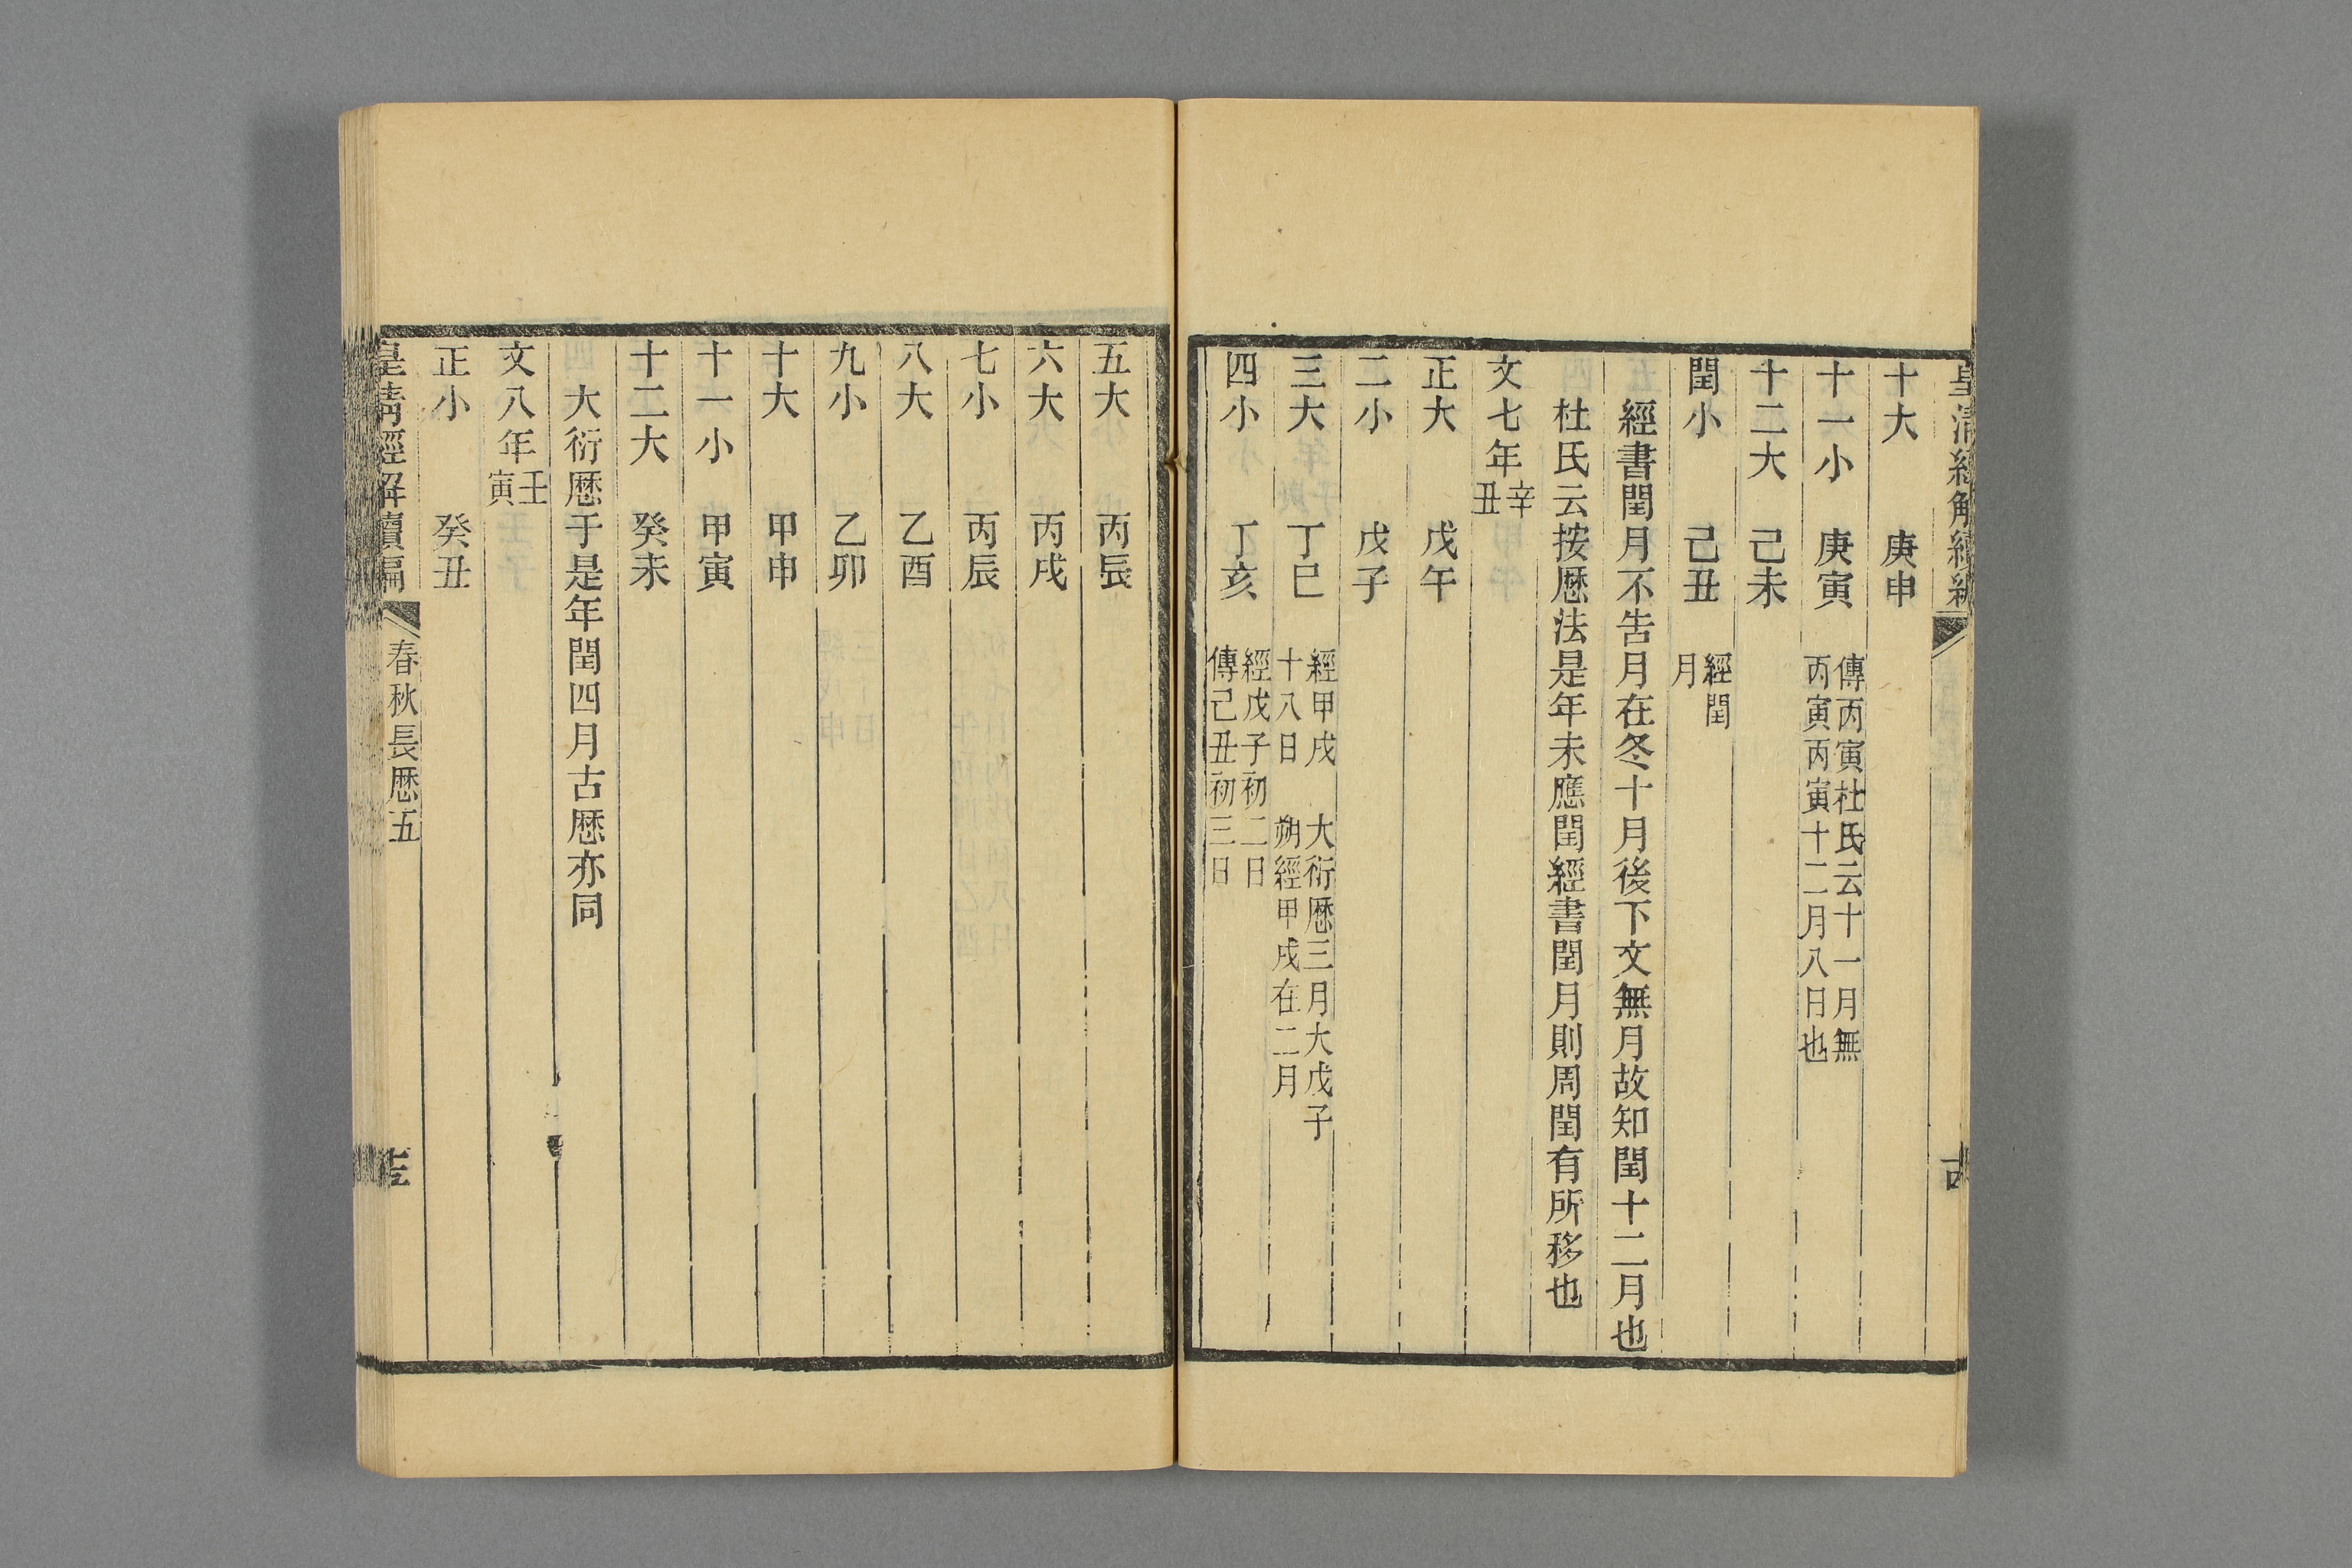 皇清經解續編
十大　庚申
十一小　庚寅　傳丙寅杜氏云十一月無丙寅丙寅十二月八日也
十二大　己未
閏小　己丑　經閏月
經書閏月不告月在冬十月後下文無月故知閏十二月也
杜氏云按厯法是年未應閏經書閏月則周閏有所移也
文七年辛丑
正大　戊午
二小　戊子
三大　丁巳　經甲戌十八日　大衍厯三月大戊子朔經甲戌在二月
四小　丁亥　經戊子初二日傳己丑初三日
五大　丙辰
六大　丙戌
七小　丙辰
八大　乙酉
九小　乙卯
十大　甲申
十一小　甲寅
十二大　癸未
大衍厯于是年閏四月古厯亦同
文八年壬寅
正小　癸丑
皇清經解續編　春秋長厯五